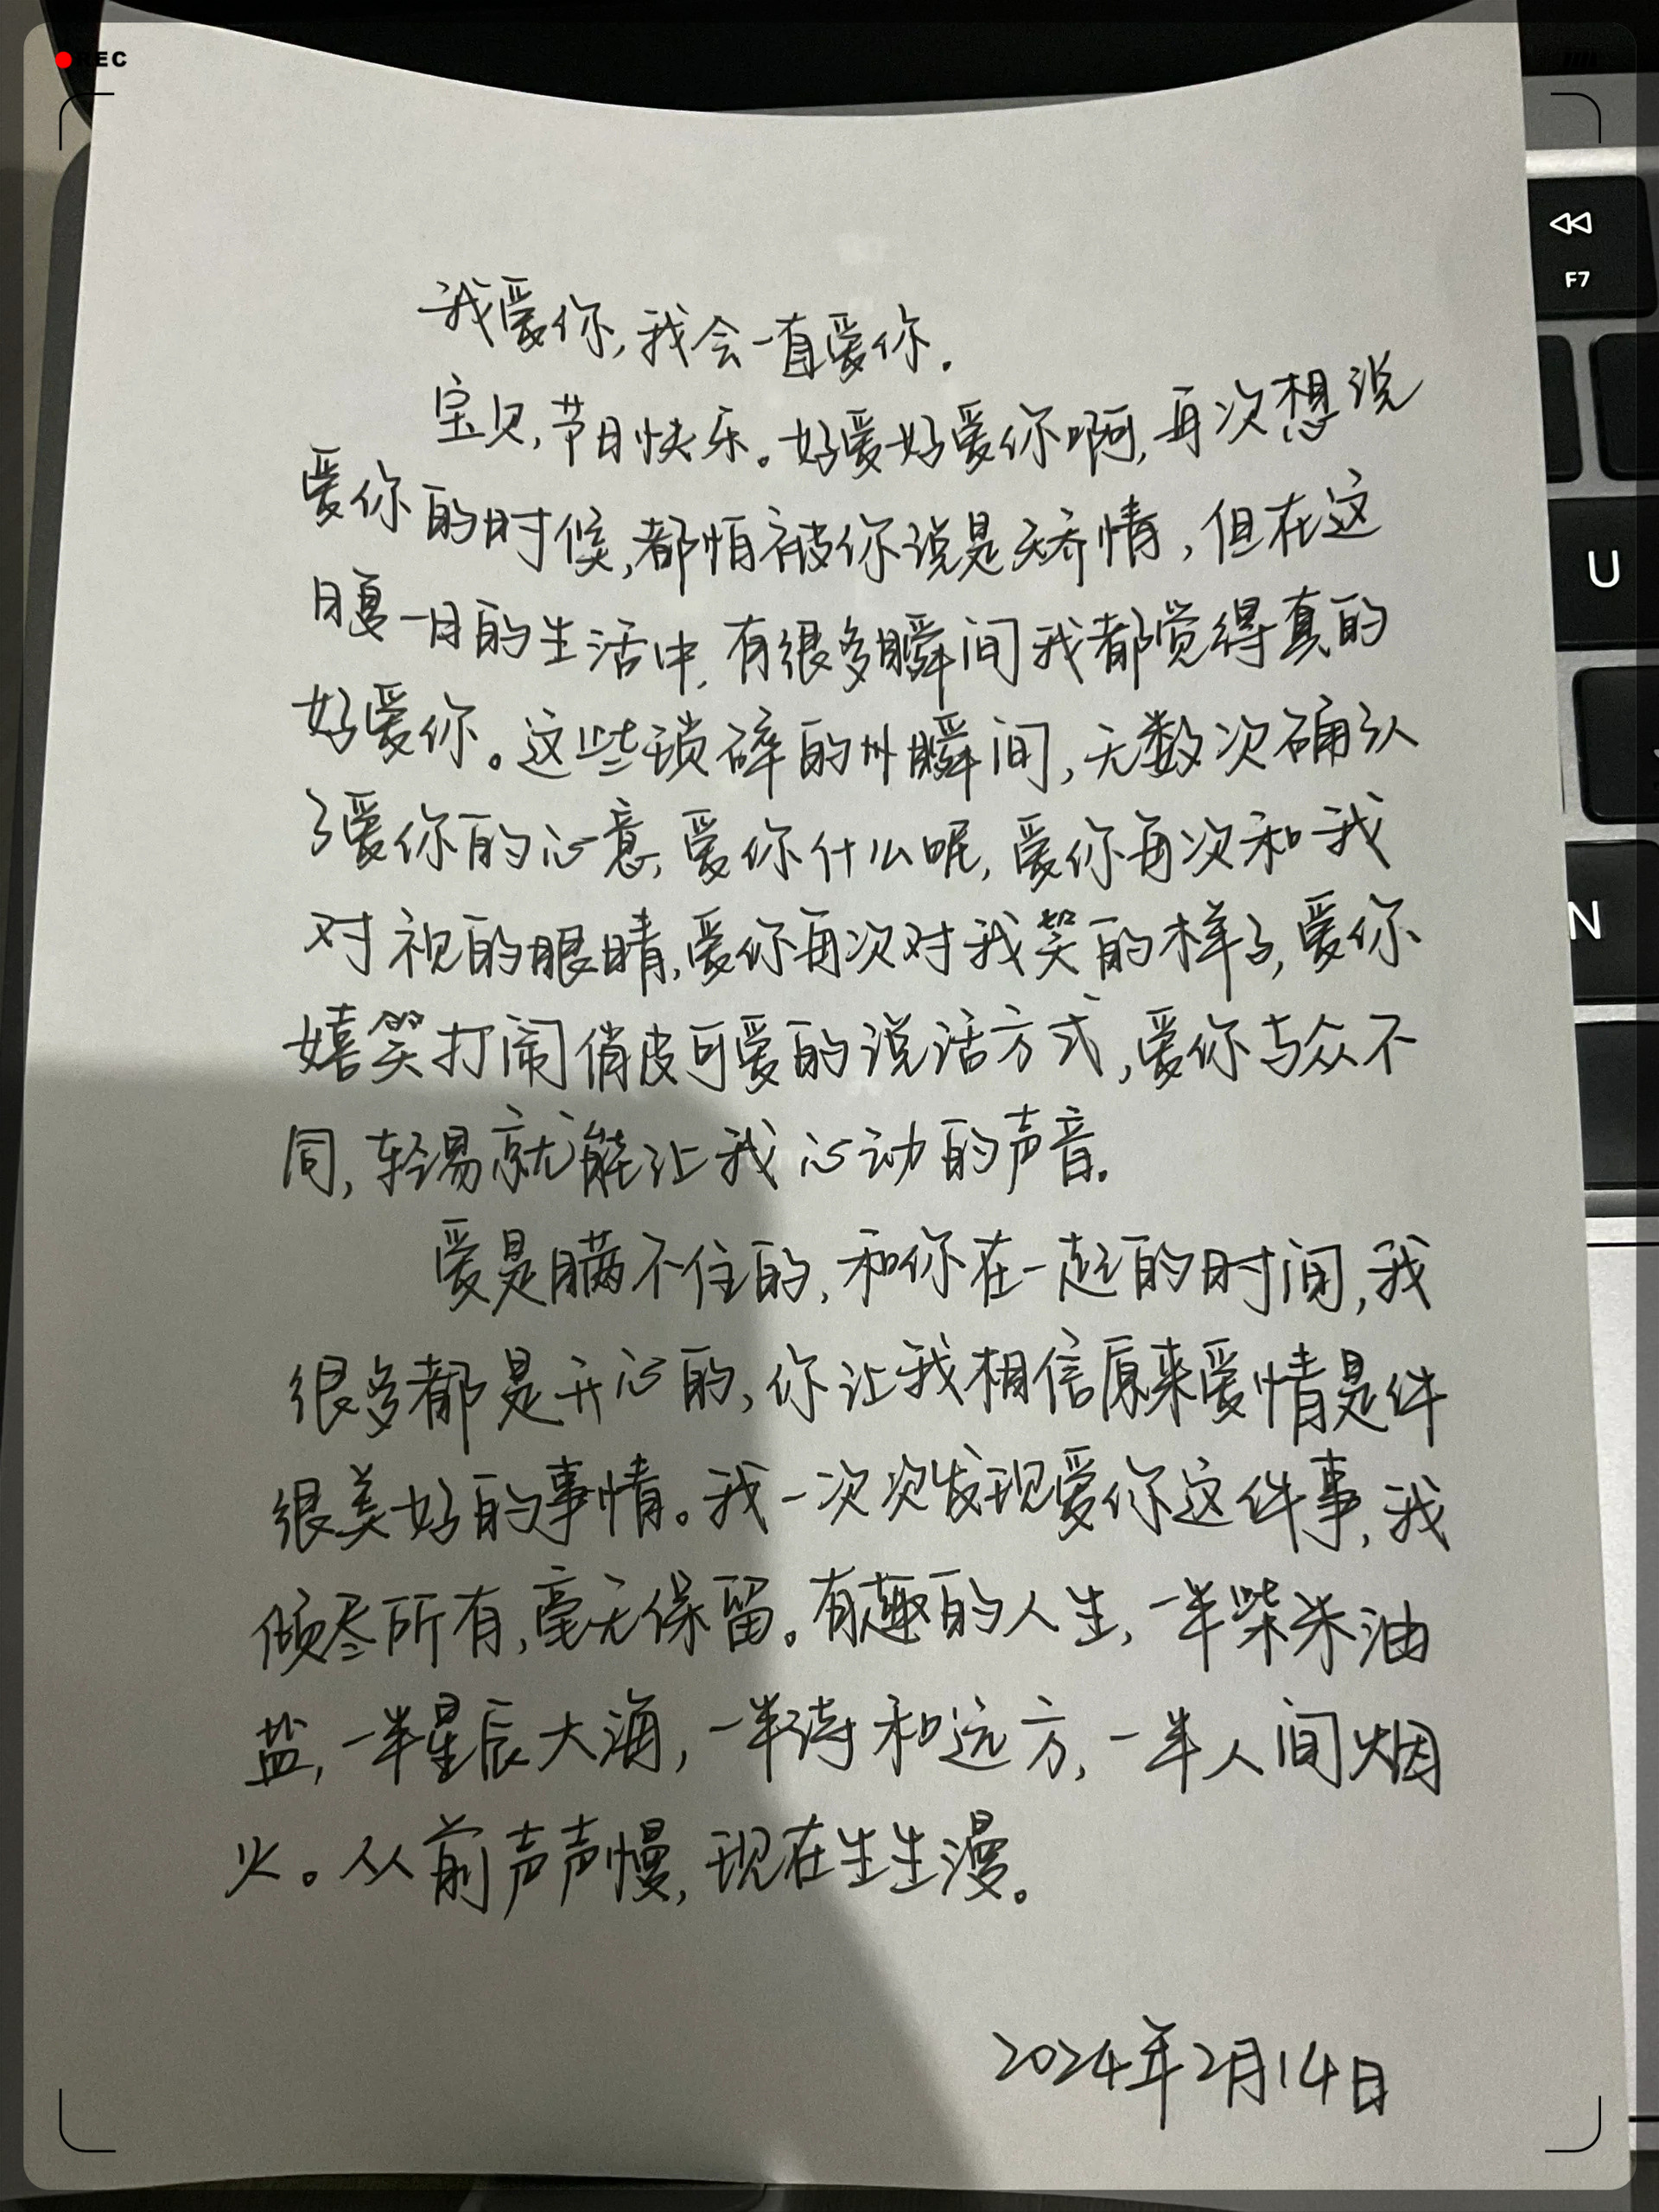 REC
F7
U
N
我爱你,我会一直爱你.
宝贝,节日快乐。好爱好爱你啊,再次想说
爱你的时候,都怕被你说是矫情,但在这
日复一日的生活中,有很多瞬间我都觉得真的
好爱你。这些琐碎的小瞬间,无数次确认
了爱你的心意,爱你什么呢,爱你每次和我
对视的眼睛,爱你每次对我笑的样子,爱你
嬉笑打闹俏皮可爱的说话方式,爱你与众不
同,轻易就能让我心动的声音.
爱是瞒不住的,和你在一起的时间,我
很多都是开心的,你让我相信原来爱情是件
很美好的事情。我一次次发现爱你这件事,我
倾尽所有,毫无保留。有趣的人生,一半柴米油
盐,一半星辰大海,一半诗和远方,一半人间烟
火。从前声声慢,现在生生漫。
2024年2月14日